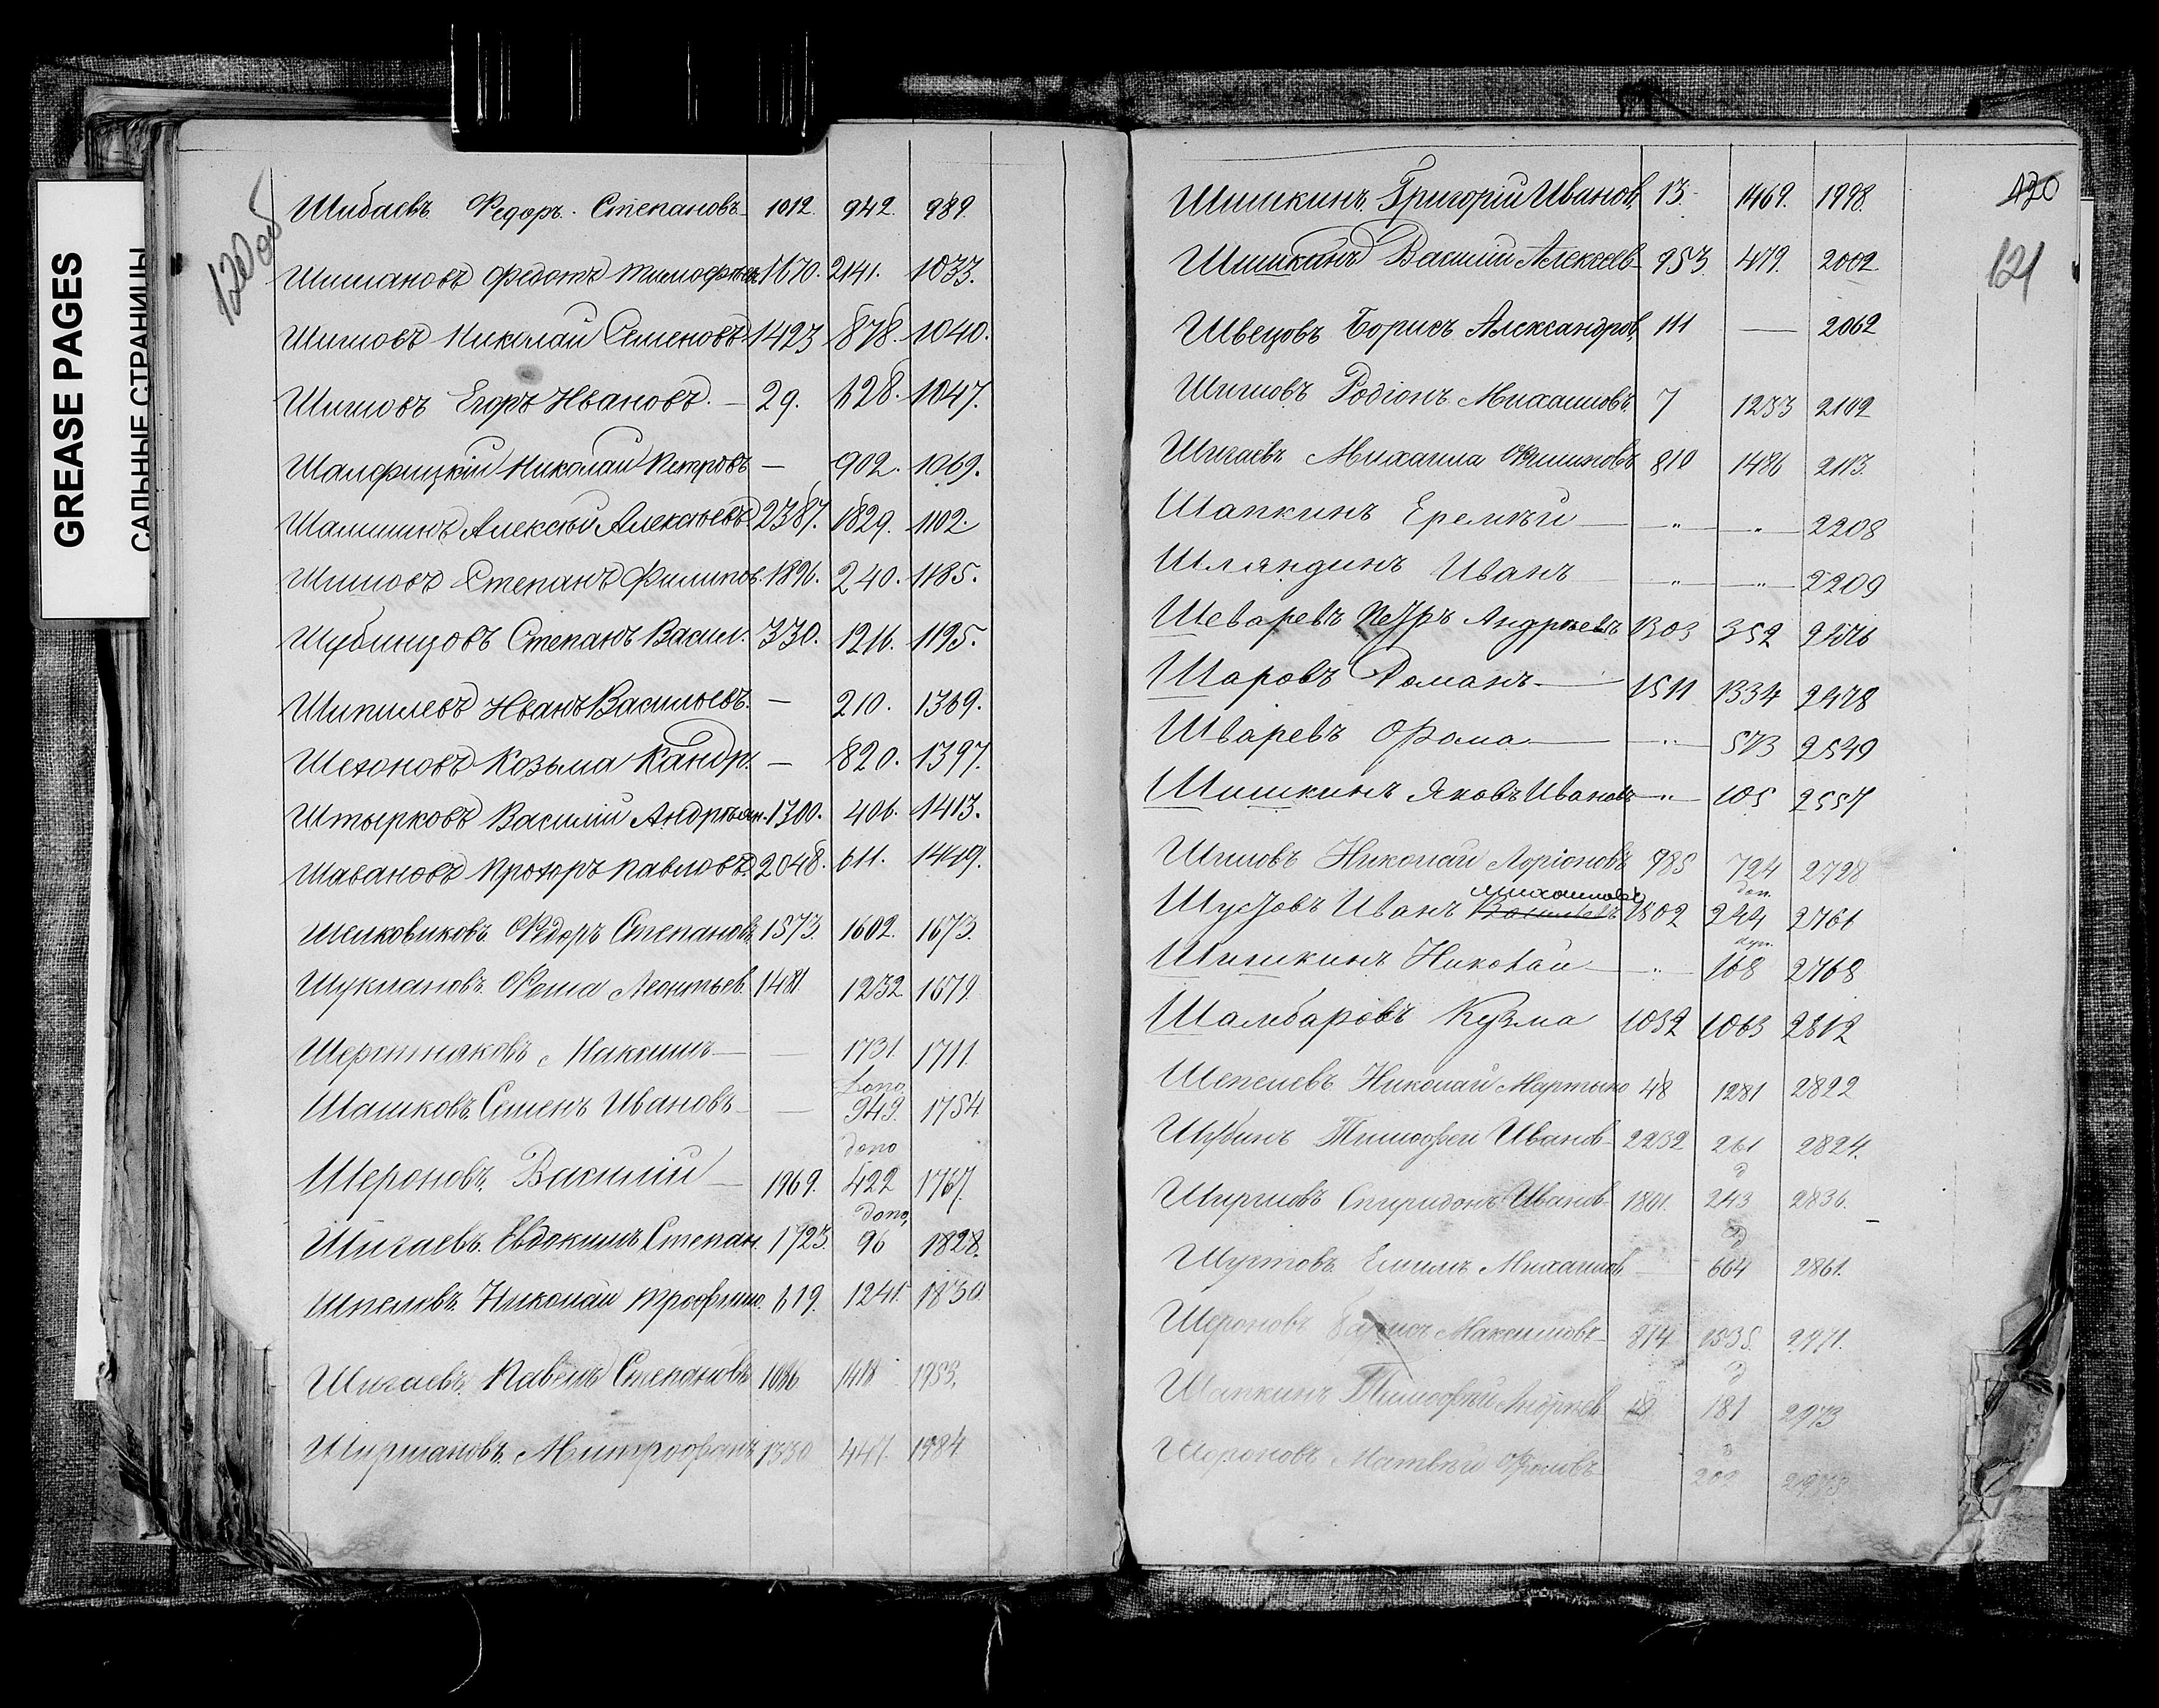 GREASE PAGES
САЛЬНЫЕ СТРАНИЦЫ
120 об
Шибаевъ Федоръ Степановъ 1012. 942. 989.
Шишановъ Федотъ Тимофеевъ 1670. 2141. 1033.
Шиловъ Николай Семеновъ 1423 878. 1040.
Шиловъ Егоръ Ивановъ. — 29. 628. 1047.
Николай Петровъ — 902. 1069.
Алексѣй Алексѣевъ 2387. 1829. 1102.
Шиловъ Степанъ Филипов. 1896. 240. 1185.
Шубинцовъ Степанъ Васил. 330. 1216. 1195.
Шипилевъ Иванъ Васильевъ. — 210. 1369.
Шехоновъ Козьма Кандр. — 820. 1397.
Штырковъ Василій Андріян. 1300. 406. 1413.
Шавановъ Прохоръ Павловъ 2048. 611. 1449.
Шелковиковъ Федоръ Степановъ 1573. 1602. 1673.
Шукмановъ Леонтьев. 1481 1232 1679.
Шерстнаковъ Максимъ — — 1731. 1711.
Шашковъ Семенъ Ивановъ — — Допо. 949. 1754
Шероновъ Василій — 1969. допо 422 1767.
Шигаевъ Евдокимъ Степан. 1723. допо, 96 1828.
Шпеловъ Николай Трофимо. 619. 1241. 1830.
Шигаевъ Павелъ Степановъ 1036 1418 1953.
Ширмановъ Митрофанъ 1330 447. 1984
120
121
Шишкинъ Григорій Иванов, 13 1469. 1998.
Шишкинъ Василій Алексеев 953. 479. 2002
Швецовъ Борисъ Александров, 111 — 2062
Шиловъ Родіонъ Михаиловъ 7 1233 2102
Шигаевъ Михаила Филиповъ 810 1486 2113.
Шапкинъ Еремѣй — „ — „ — 2208
Шляндинъ Иванъ — „ — „ — 2209
Шеваревъ Петръ Андреевъ 1303 352
Шаровъ Романъ — 1511 1334 2478
Шваревъ Фома — „ — 573 2549
Шишкинъ Яковъ Ивановъ — „ — 105 2557
Шиловъ Николай Лоріоновъ 985 724 2728
Шустовъ Иванъ Михаиловъ 1802 доп. 244 2761
Шишкинъ Николай — „ — 168 2768
Шамбаровъ Кузма 1032 1063 2812
Шепелевъ Николай Мартыно 48 1281 2822
Шубинъ Тимофей Иванов 2232 261 2824.
Спиридонъ Иванов 1801. д 243 2836.
Шустовъ Михаилов — д 664 2861.
Шероновъ Борисъ Максимовъ 874 1535. 2971.
Шапкинъ Тимофѣй Андреев д 181 2973
Шероновъ Матвѣй Фроловъ д 202